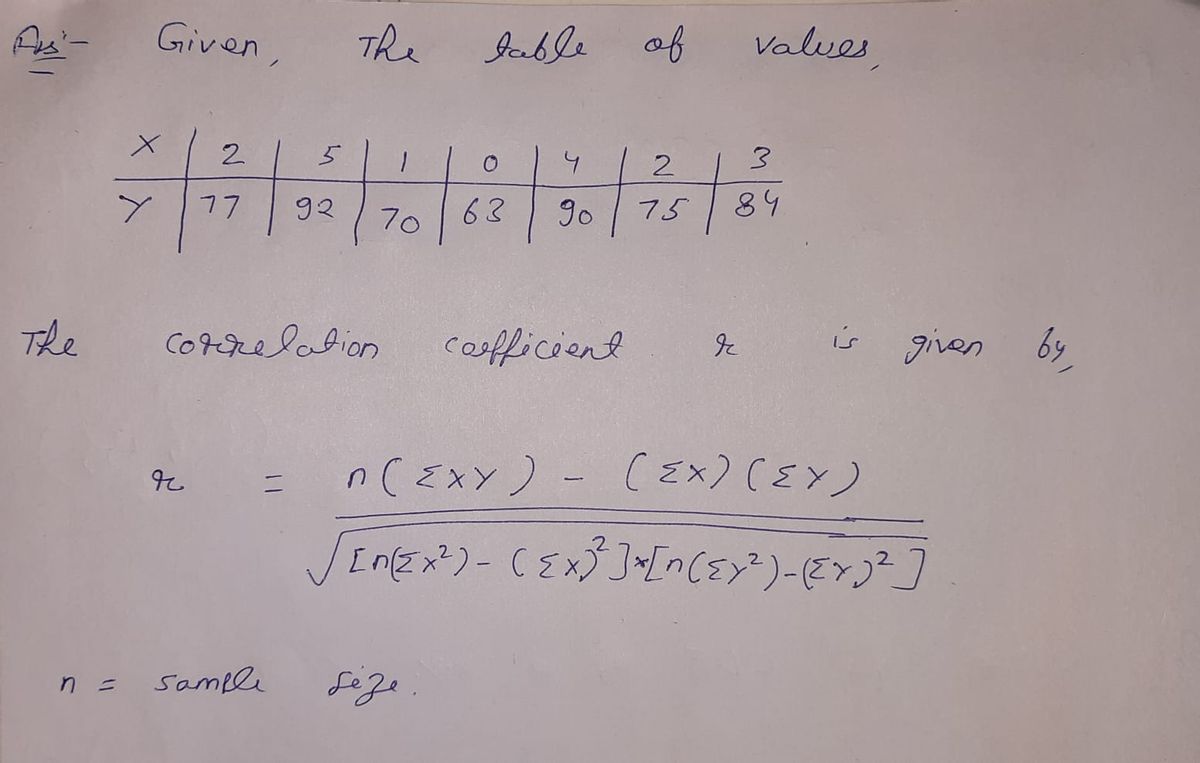 Ans:- Given, The table of values,
X | 2 | 5 | 1 | 0 | 4 | 2 | 3
Y | 77 | 92 | 70 | 63 | 90 | 75 | 84
The correlation coefficient r is given by,
r = n(ΣXY) - (ΣX)(ΣY)
√[n(Σx²) - (Σx)²]*[n(Σy²)-(Σy)²]
n = sample size.